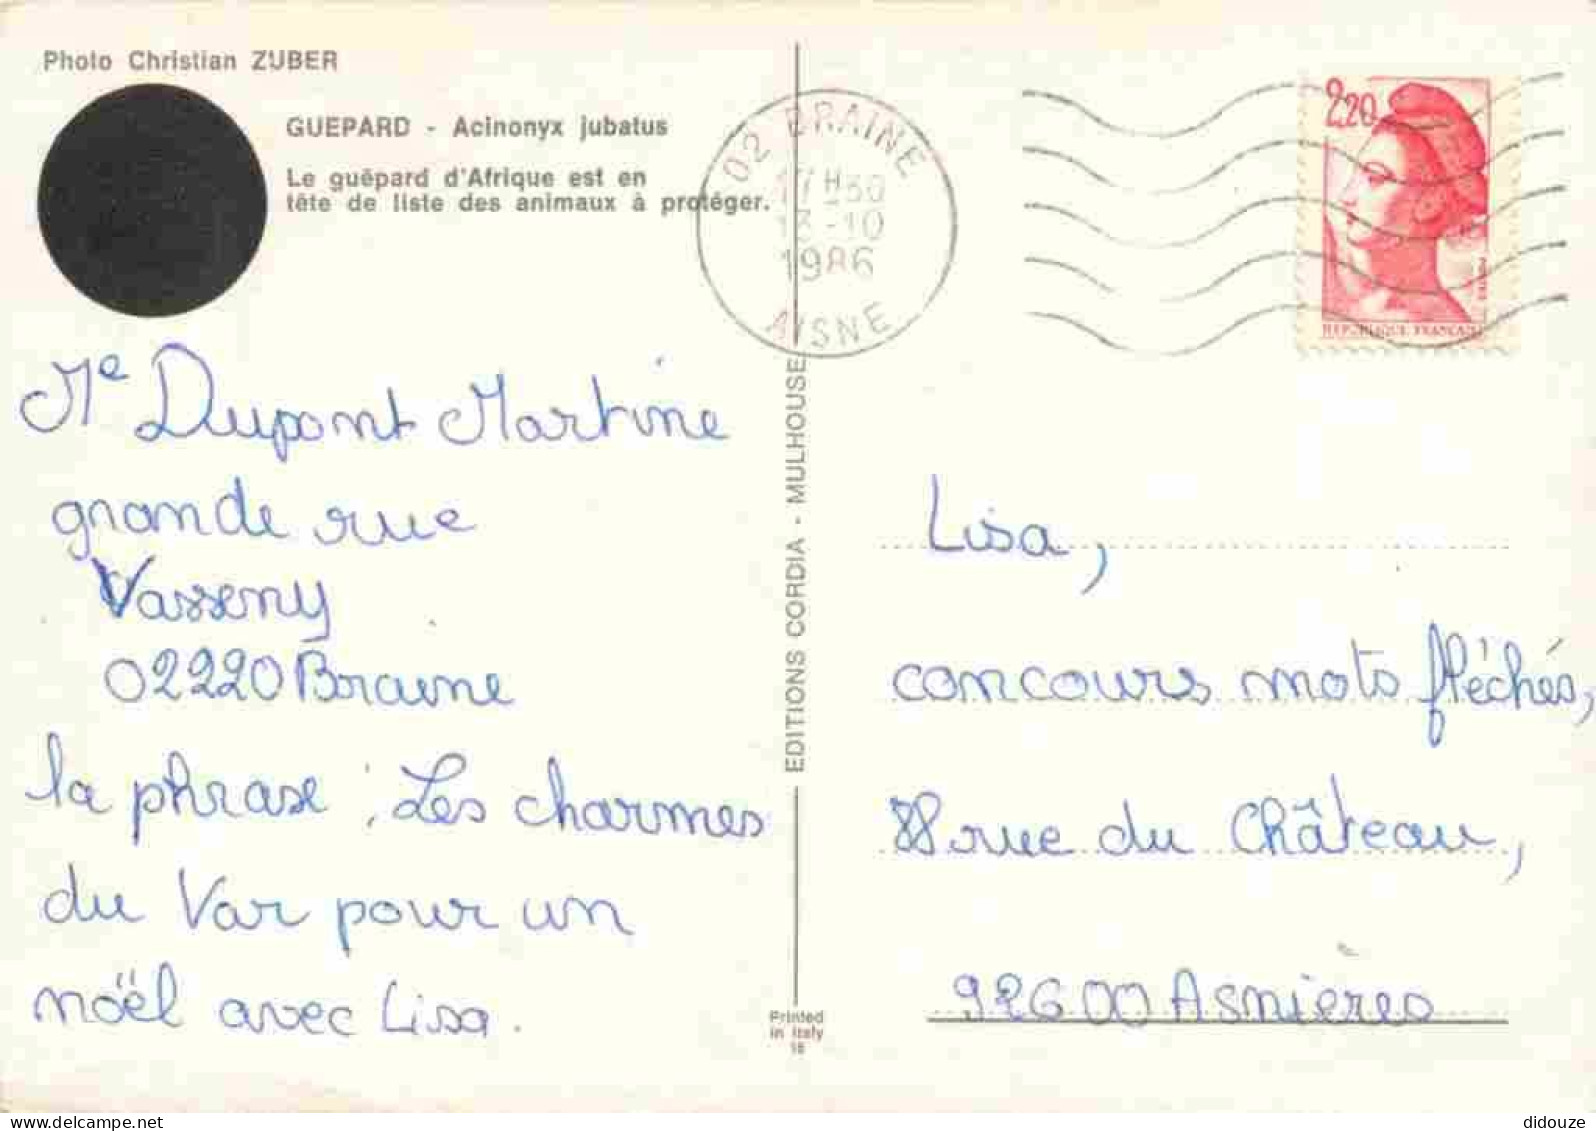 Photo Christian ZUBER
GUEPARD - Acinonyx jubatus
Le guépard d'Afrique est en
tête de liste des animaux à protéger.
02 BRAINE
17H30
13-10
1986
AISNE
2,20
REPUBLIQUE FRANCAISE
Me Dupont Martine
grande rue
Vasseny
02220 Braine
la phrase : Les charmes
du Var pour un
noël avec Lisa.
EDITIONS CORDIA - MULHOUSE
Printed
in Italy
Lisa,
concours mots fléchés,
rue du Château,
92600 Asnières
www.delcampe.net
didouze